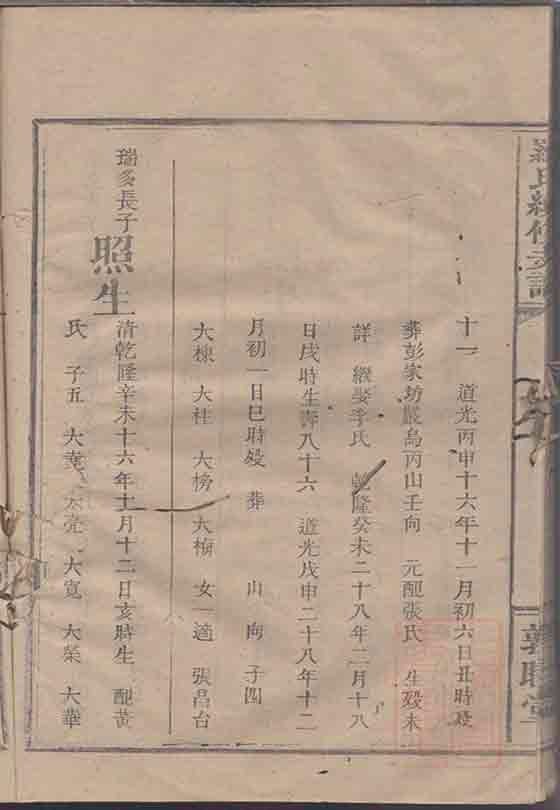 氏續修支譜
十一 道光丙申十六年十一月初六日丑時歿
葬彭家坊嚴烏丙山壬向 元配張氏 生歿未
詳 繼娶李氏 乾隆癸未二十八年二月十八
日戌時生壽八十六 道光戊申二十八年十二
月初一日巳時歿 葬 山 向 子四
大棟 大桂 大榜 大梅 女一適 張昌台
瑞多長子 照生 清乾隆辛未十六年十月十二日亥時生 配黃
氏 子五 大 大亮 大寬 大榮 大華